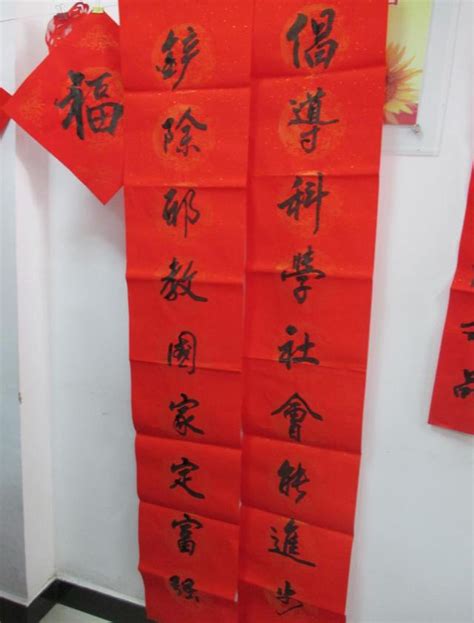 倡導科學社會能進步
鏟除邪教國家定富强
福
品